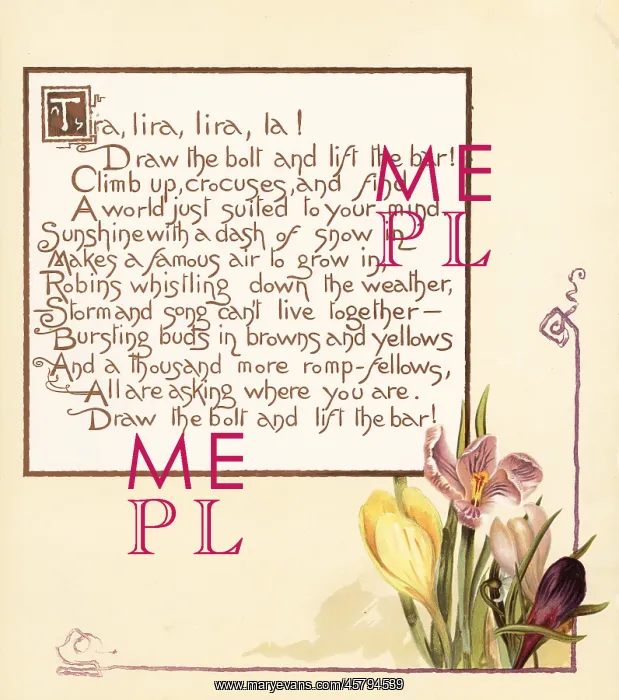 Tra, lira, lira, la!
Draw the bolt and lift the bar!
Climb up, crocuses, and find
A world just suited to your mind
Sunshine with a dash of snow in—
Makes a famous air to grow in,
Robins whistling down the weather,
Storm and song can't live together—
Bursting buds in browns and yellows
And a thousand more romp-fellows,
All are asking where you are.
Draw the bolt and lift the bar!
ME
PL
ME
PL
www.maryevans.com/45794589